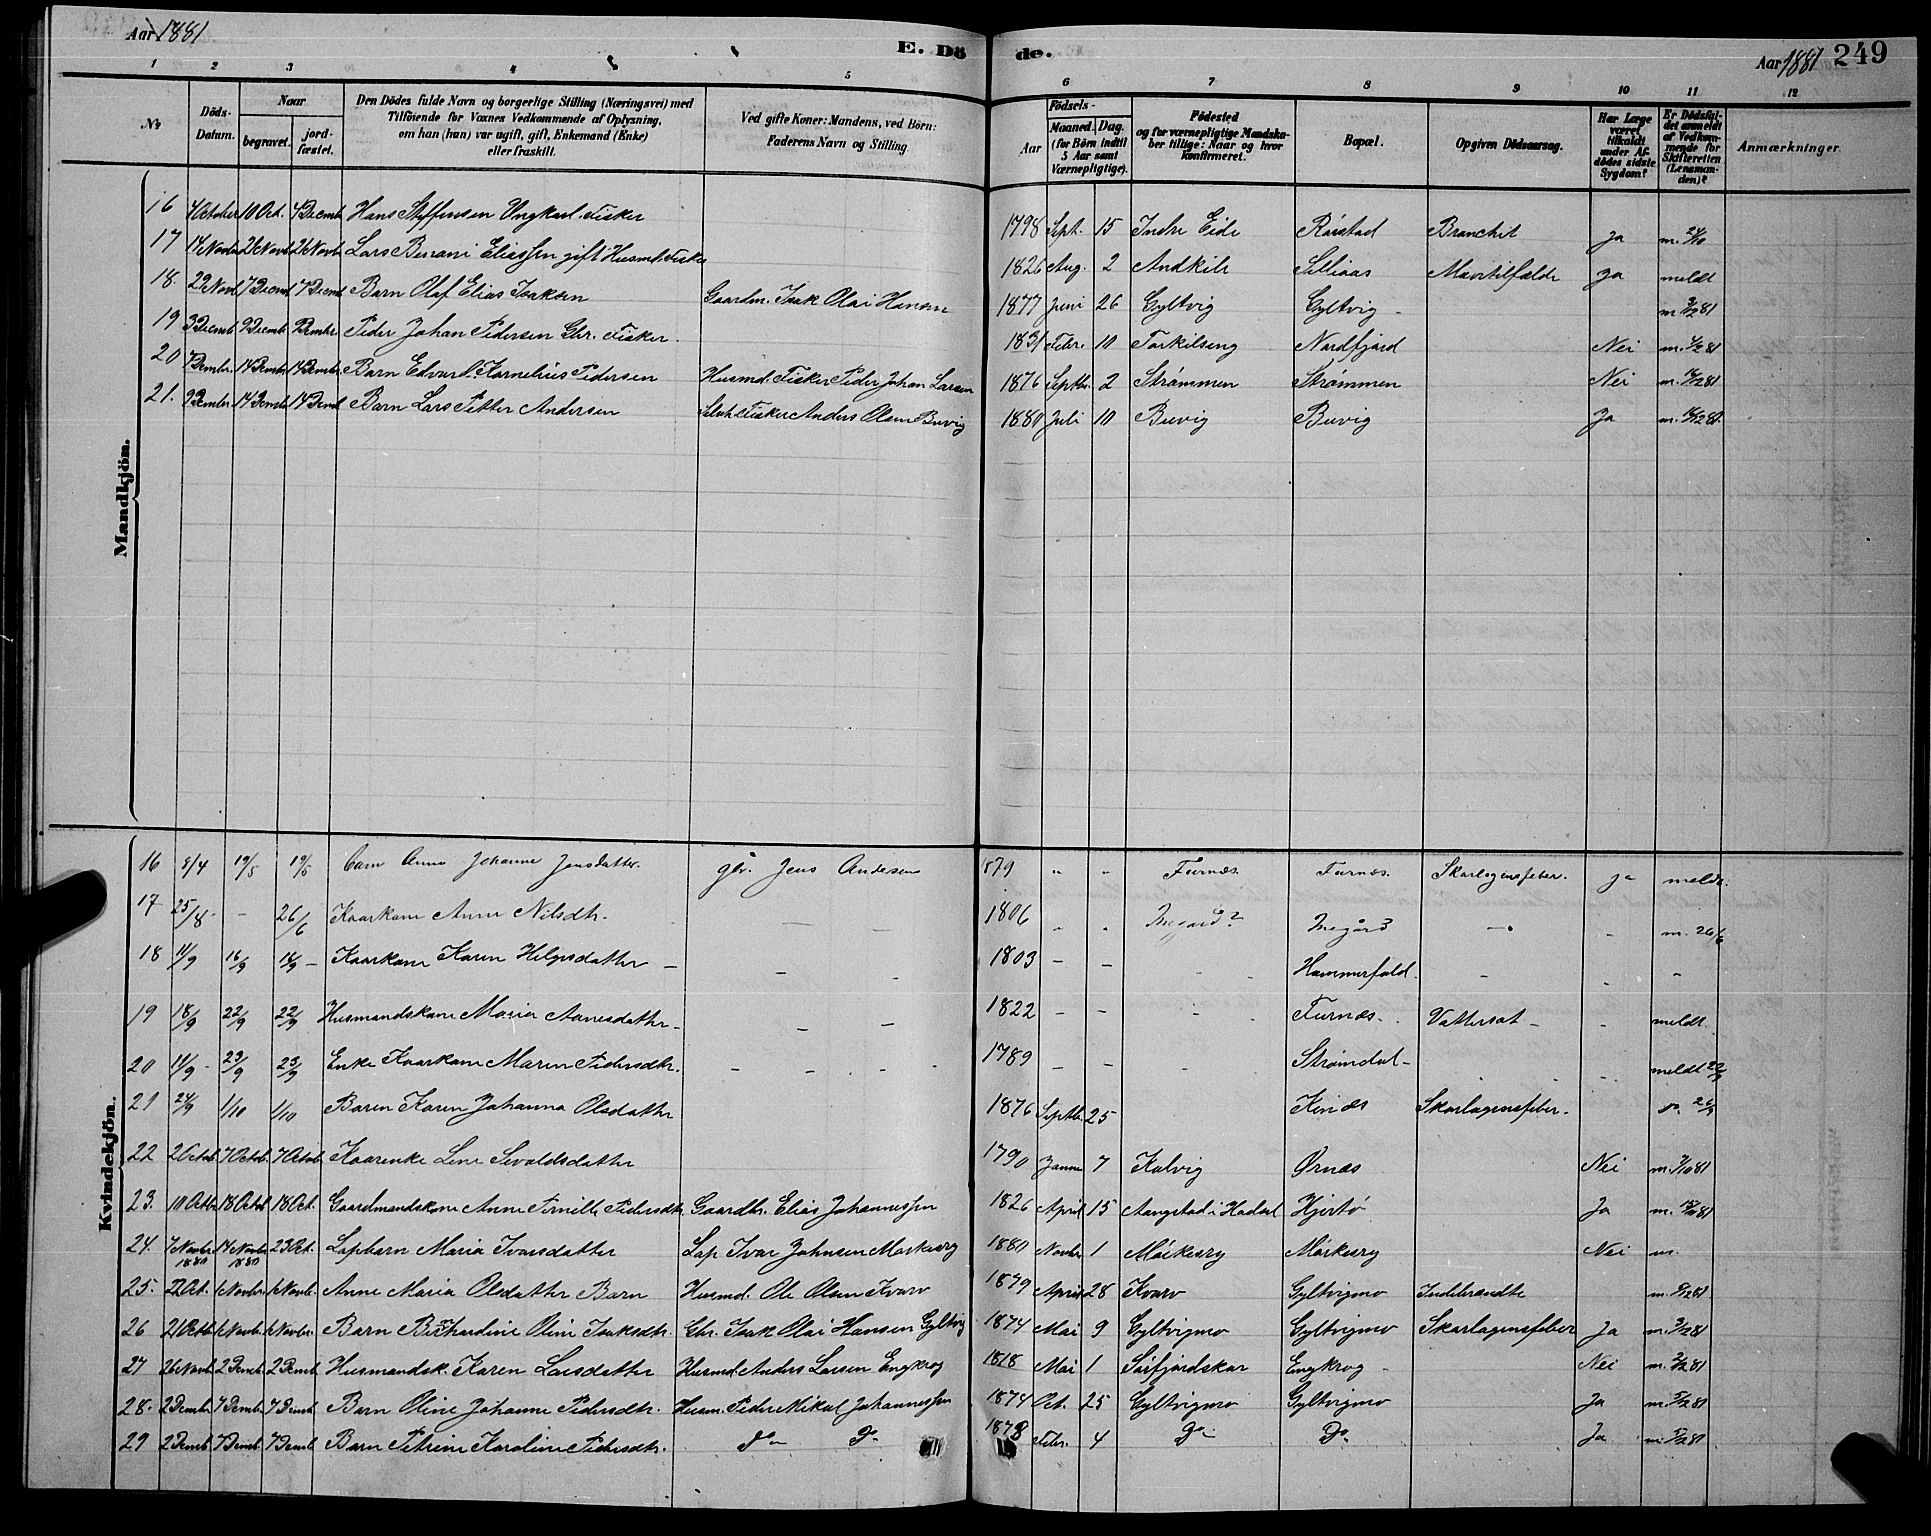 Aar 1881
E. Dö de.
Aar 1881 249
1 2 3 4 5 6 7 8 9 10 11 12
No
Döds-Datum.
Naar
begravet.
jord-fæstet.
Den Dödes fulde Navn og borgerlige Stilling (Næringsvei) med
Tilföiende for Voxnes Vedkommende af Oplysning,
om han (hun) var ugift, gift, Enkemand (Enke)
eller fraskilt.
Ved gifte Koner: Mandens, ved Börn:
Faderens Navn og Stilling
Födsels-
Aar
Maaned. Dag.
(for Börn indtil
5 Aar samt
Værnepligtige).
Födested
og for værnepligtige Mandska-
ber tillige: Naar og hvor
konfirmeret.
Bopæl.
Opgiven Dödsaarsag.
Har Læge
været
tilkaldt
under Af-
dödes sidste
Sygdom?
Er Dödsfal-
det anmeldt
af Vedkom-
mende for
Skifteretten
(Lensman-
den)?
Anmærkninger.
Mandkjön.
16 4 October 10 Oct. 4 Decmb. Hans Steffensen Ungkarl Fisker 1798 Sept. 15 Indre Eide Rørstad Bronchit Ja m. 24/10
17 14 Novbr 26 Novb 26 Novb Lars Eliassen gift Husmd. Fisker 1826 Aug. 2 Andkile Silliaas Mavetilfælde Ja meldt
18. 29 Novb 7 Decmb 7 Decmb Barn Olaf Elias Isaksen Gaardm. Isak Olai Hansen 1877 Juni 26 Gyltvig Gyltvig
19 3 Decmb 9 Decmb 9 Dcmbr Peder Johan Pedersen Gbr. Fisker. 1831 Febr. 10 Torkilseng Nordfjord Nei
20 7 Dcmbr. 14 Dcmbr 14 Dcmbr Barn Edvard Kornelius Pedersen Husmd. Fisker Peder Johan Larsen 1876 Septbr. 2 Strømmen Strømmen Nei
21. 9 Dcmbr 14 Dcmb 14 Dcmb Barn Lars Petter Andersen Fisker Anders Olsen Buvig 1880 Juli 10 Buvig Buvig Ja
Kvindekjön.
16 8/4 19/5 19/5 barn Anna Johanna Jensdatter. gbr. Jens Andersen 1879 " " Furnæs. Furnæs. Skarlagensfeber. ja meldt.
17 25/8 - 26/6 Kaarkone Anne Nilsdtr. 1806 m. 26/6
18 11/9 16/9 16/9 Kaarkone Karen Helgesdatter 1803 - - Hammerfald.
19 18/9 22/9 22/9 Husmandskone Maria Aanesdattr 1822 - - Furnæs. Vattersot - meldt.
20 11/9 23/9 23/9 Enke Kaarkone Maren Pedersdtr. 1789 - - Strømdal meldt 22/9
21 24/9 1/10 1/10 Baren Karen Johanna Olsdatter 1876 Septbr. 25 Kinæs Skarlagensfeber. 26/9
22 2 Octob 7 Octob. 7 Octob. Kaarenke Lene Sivaldsdatter 1790 Janua 7 Kalvig Ørnæs Nei m. 7/10 81
23. 10 Octbr 18 Octob 18 Oct. Gaardmandskone Anne Pernille Pedersdtr. Gaardbr. Elias Johannessen 1826 April 15 Aangstad i Hadsel Hjertø Ja
24. 7 Novbr 1880 14 Novbr 1880 23 Oct. Lapbarn Maria Ivarsdatter Lap Ivar Johnsen Mørkesry 1880 Novbr 1 Mørkesry Mørkesry Nei m.
25. 22 Oct. 6 Novbr. 6 Novb. Anne Maria Olsdatter Barn Husmd. Ole Olsen Kvarv 1879 April 28 Kvarv Gyltvigmo
26 21 Octb 6 Novb. 6 Novbr. Barn Oline Isaksdtr. Gbr. Isak Olai Hansen Gyltvig 1874 Mai 9 Gyltvigmo Gyltvigmo Skarlagensfeber Ja
27 26 Novb 2 Dcmb 2 Dcmb Husmandsk. Karen Larsdatter Husmd. Anders Larsen Engkrog 1818 Mai 1 Sørfjordskar Engkrog Nei
28. 2 Dcmb 7 Dcmb. 7 Dcmb. Barn Oline Johanne Pedersdtr. Husm. Peder Nikal Johannessen 1874 Oct. 25 Gyltvigmo Gyltvigmo Ja
29 2 Dcmb 7 Dcmb 7 Dcmb Barn Petrine Karoline Pedersdtr. Do Do 1878 Febr. 4 Do Do Ja